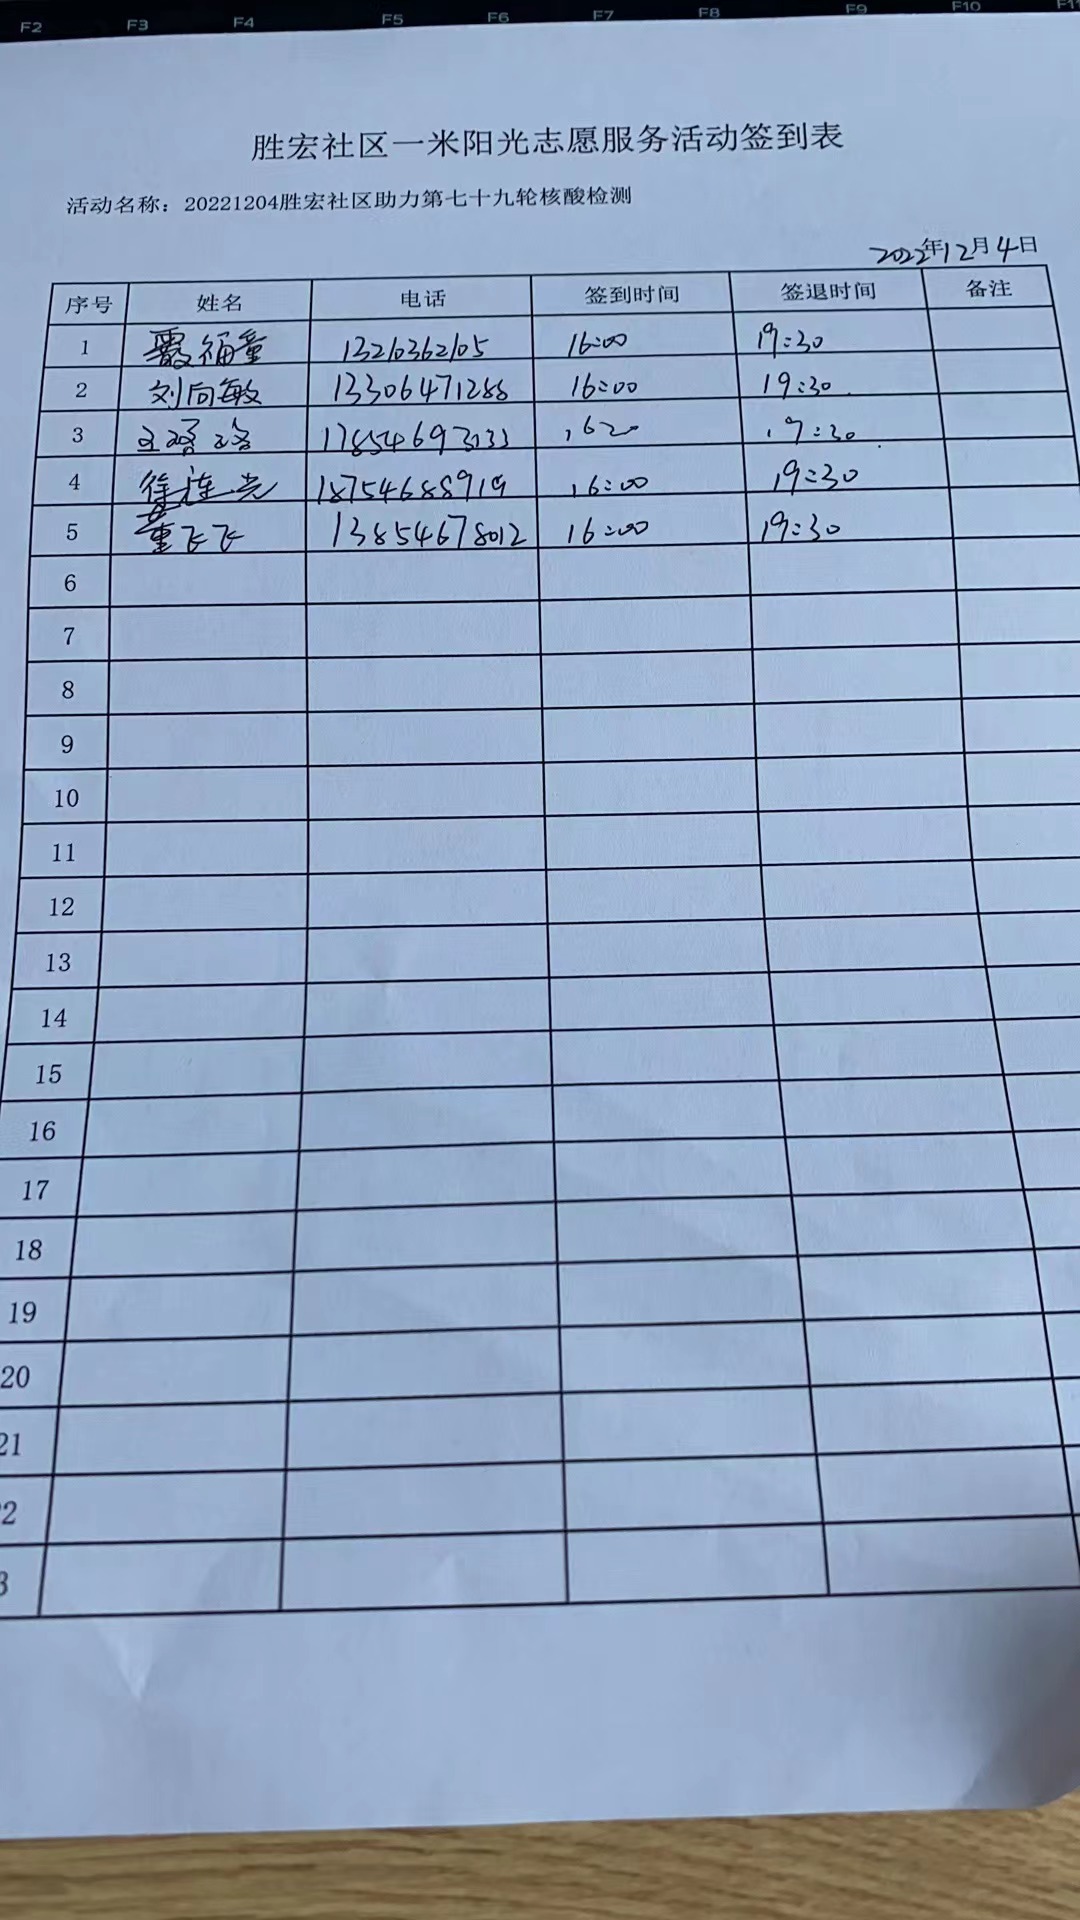 F2 F3 F4 F5 F6 F7 F8 F9 F10 F11
胜宏社区一米阳光志愿服务活动签到表
活动名称：20221204胜宏社区助力第七十九轮核酸检测
2022年12月4日
序号 姓名 电话 签到时间 签退时间 备注
1 福童 13210362105 16:00 19:30
2 刘向敏 13306471288 16:00 19:30
3 王璐璐 17854693133 1620 19:30
4 徐连光 18754688919 16:00 19:30
5 董飞飞 13854678012 16:00 19:30
6
7
8
9
10
11
12
13
14
15
16
17
18
19
20
21
2
3